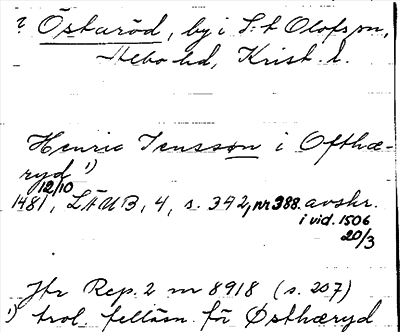 ? Östaröd, by i S:t Olofs sn,
Albo hd, Krist. l.
Henric Jensson i Ofthæ-
ryd 1)
12/10
1481, LÄUB, 4, s. 342, nr 388. avskr.
i vid. 1506
20/3
Jfr Rep. 2 nr 8918 (s. 207)
1) trol. felläsn. för Østhæryd